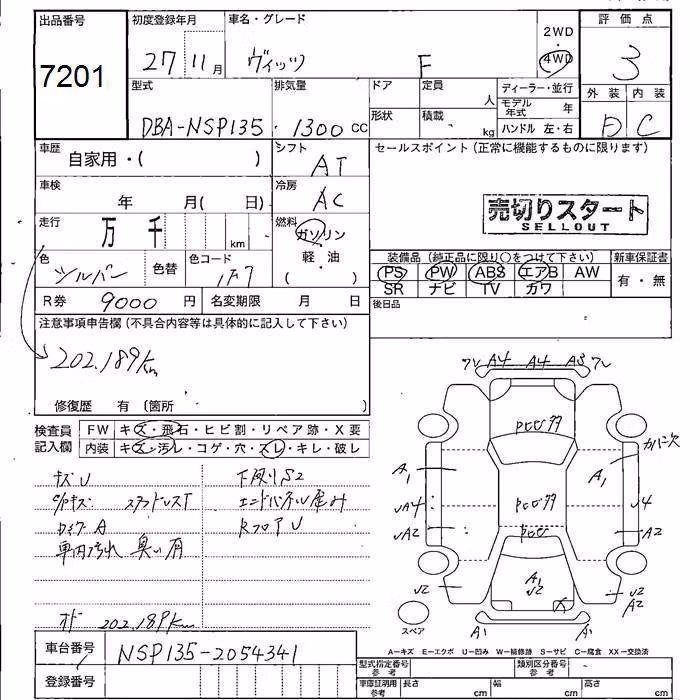 出品番号
7201
初度登録年月
27 11月
車名・グレード
ヴィッツ F
2WD
・
4WD
評価点
3
外装 内装
D C
型式
DBA-NSP135
排気量
1300 CC
ドア
形状
定員
人
積載
kg
ディーラー・並行
モデル年式 年
ハンドル 左・右
車歴
自家用・( )
シフト
AT
セールスポイント (正常に機能するものに限ります)
売切りスタート
SELLOUT
車検
年 月( 日)
冷房
AC
走行
万 千 km
燃料
ガソリン
軽・油
( )
色
シルバー
色替
色コード
1F7
装備品 (純正品に限り○をつけて下さい)
PS PW ABS エアB AW
SR ナビ TV カワ
新車保証書
有・無
R券 9000 円
名変期限 月 日
後日品
注意事項申告欄 (不具合内容等は具体的に記入して下さい)
202.189Km
修復歴 有 (箇所 )
検査員
記入欄
FW キズ・飛石・ヒビ割・リペア跡・X要
内装 キズ・汚レ・コゲ・穴・スレ・キレ・破レ
車内汚れ 臭い有
下廻りS2
エンドパネル歪み
RフロアU
202.189Km
A4 A4 A3
A1
A1
A2
A1
A2
A1
A1
スペア
A-キズ E-エクボ U-凹み W-補修跡 S-サビ C-腐食 XX-交換済
車台番号
NSP135-2054341
登録番号
型式指定番号
参考
類別区分番号
参考
車庫証明用
参考
長さ cm
幅 cm
高さ cm